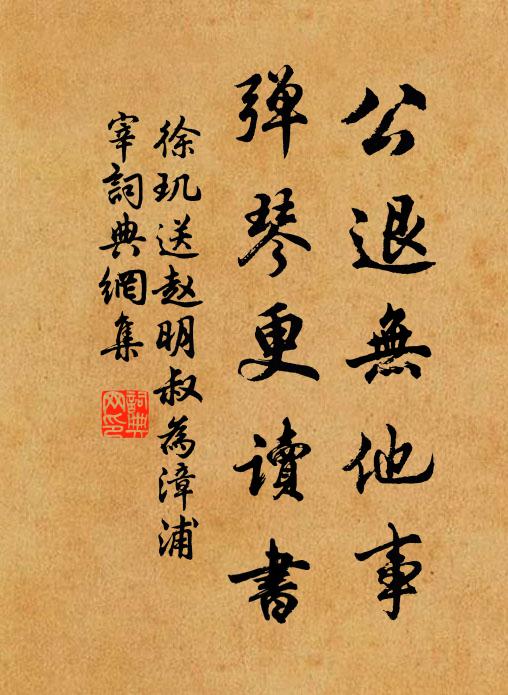 公退無他事
弹琴更讀書
徐玑送赵明叔為漳浦
宰詞典網集
詞典网印